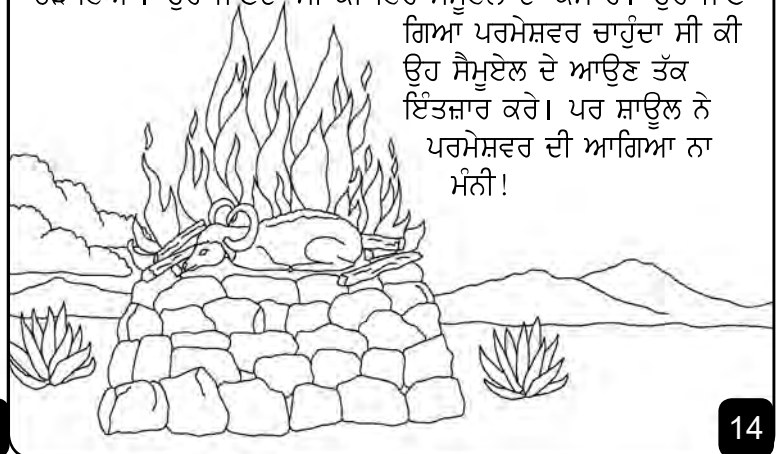 ਗਿਆ ਪਰਮੇਸ਼ਵਰ ਚਾਹੁੰਦਾ ਸੀ ਕੀ
ਉਹ ਸੈਮੂਏਲ ਦੇ ਆਉਣ ਤੱਕ
ਇੰਤਜ਼ਾਰ ਕਰੇ। ਪਰ ਸ਼ਾਊਲ ਨੇ
ਪਰਮੇਸ਼ਵਰ ਦੀ ਆਗਿਆ ਨਾ
ਮੰਨੀ!
14